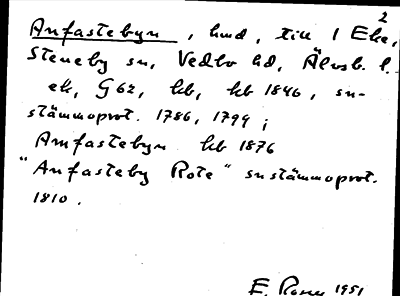 2
Anfastebyn, hmd, till 1 Eke,
Steneby sn, Vedbo hd, Älvsb. l.
ek, G62, kb, kb 1846, sn-
stämmoprot. 1786, 1799;
Amfastebyn kb 1876
"Anfasteby Rote" snstämmoprot.
1810.
E. 1951